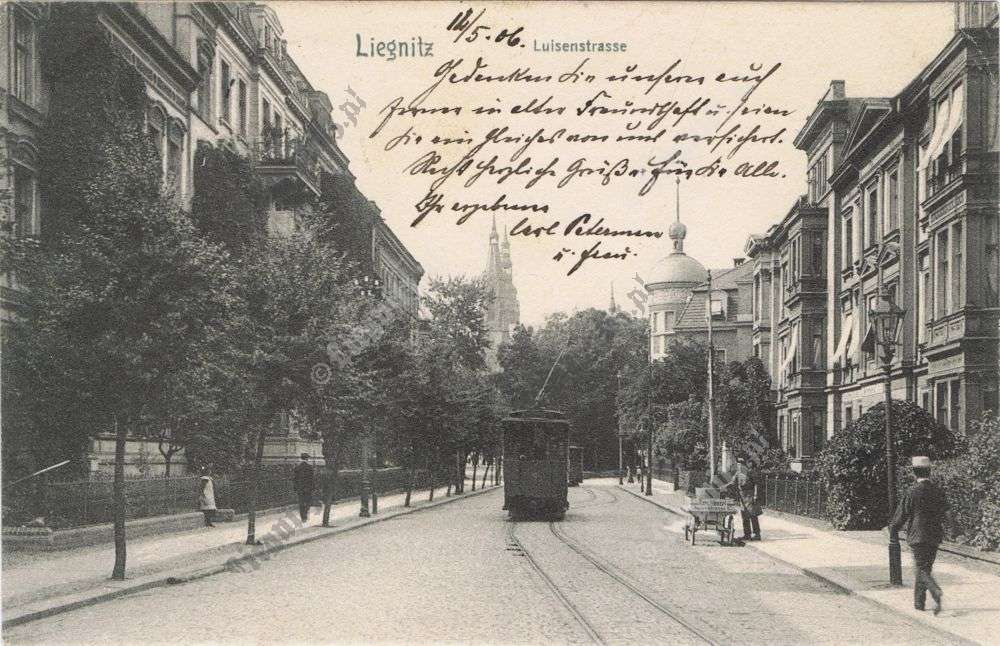 Liegnitz
12/5.06.
Luisenstrasse
Gedenken Sie unserer auch
ferner in alter Freundschaft u. seien
Sie ein Gleiches von uns versichert.
Recht herzliche Grüße für Sie Alle.
Ihr ergebener
Carl Petermann
u. Frau.